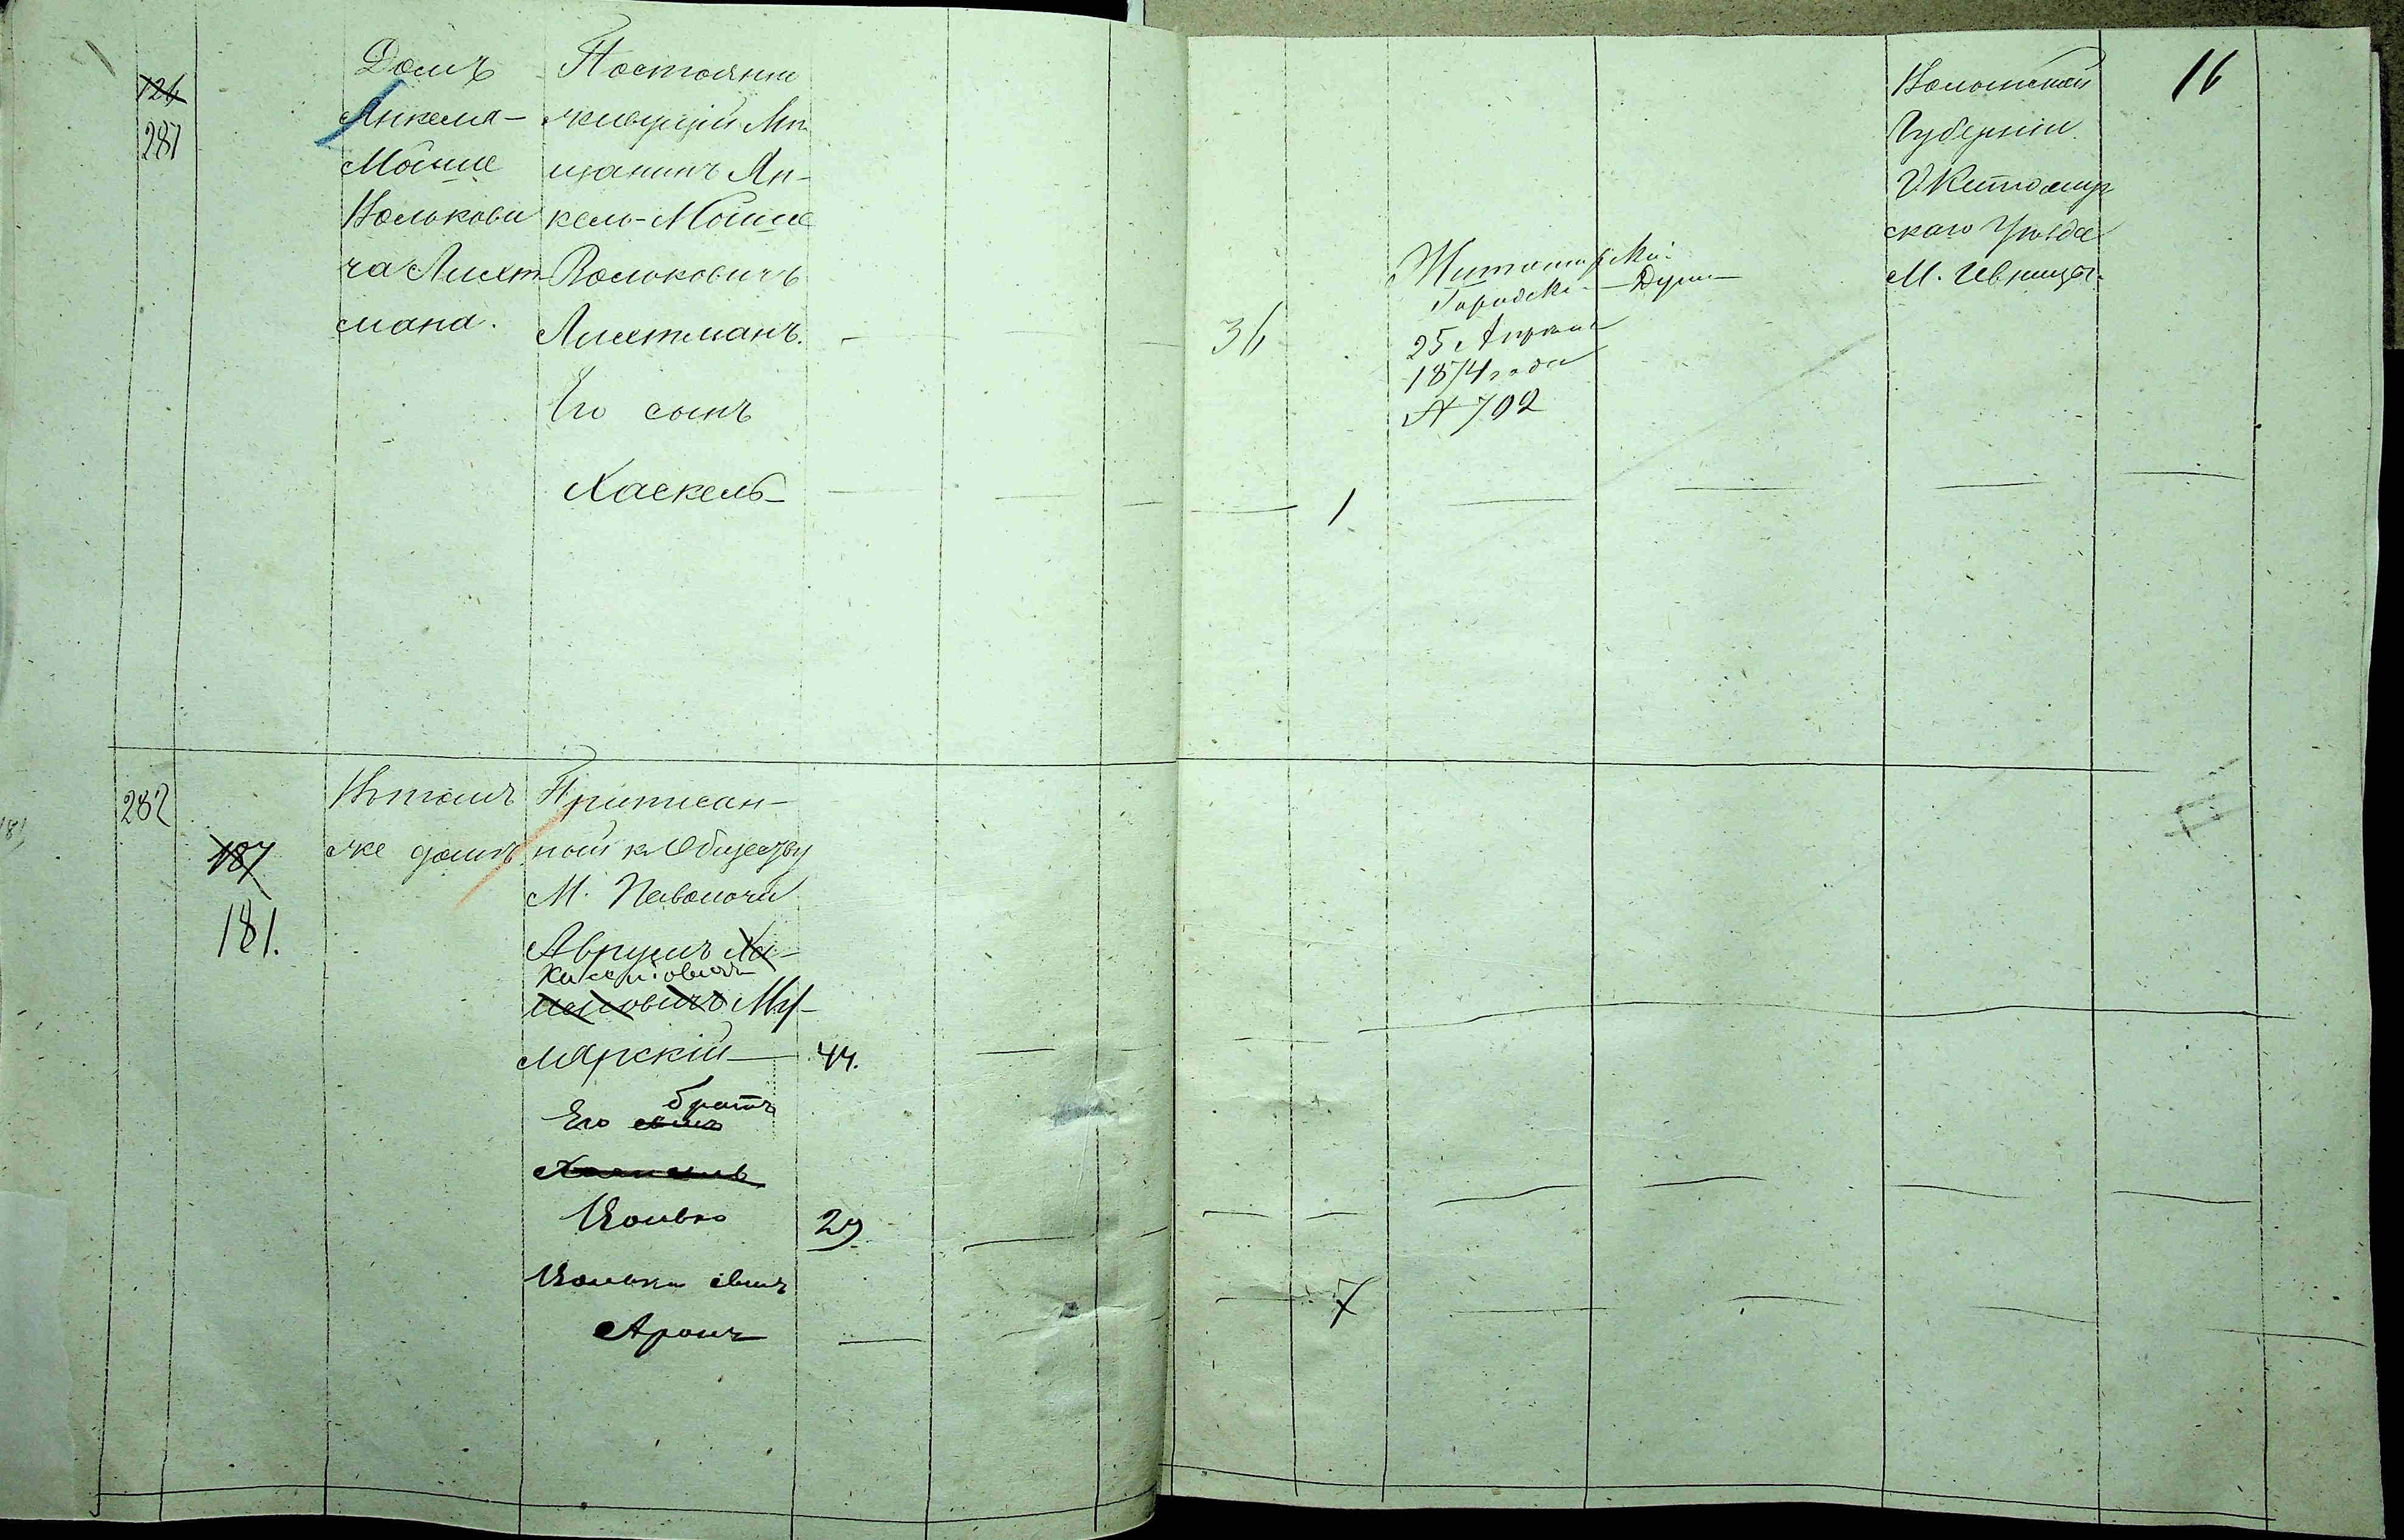 126
281
Домъ
Янкеля-
Мошие
Вольковы
ча Лихт
мана.
Постоянно
живущій Мѣ
щанинъ Ян-
кель-Мошие
Вольковичъ
Лихтманъ.
Его сынъ
Хаскель
36
1
Житомирской
Городской Думы
25 Апреля
1874 года
№ 702
Волынской
Губерніи
Житомир
скаго Уѣзда
М. Ивницы.
16
282
187
181.
Въ томъ
же домѣ
Приписан-
ный къ Обществу
М. Паволочи
Аврумъ Ха-
овичъ Му-
лярскій
44.
Его сынъ братъ
Волько
29
Волька сынъ
Аронъ
7